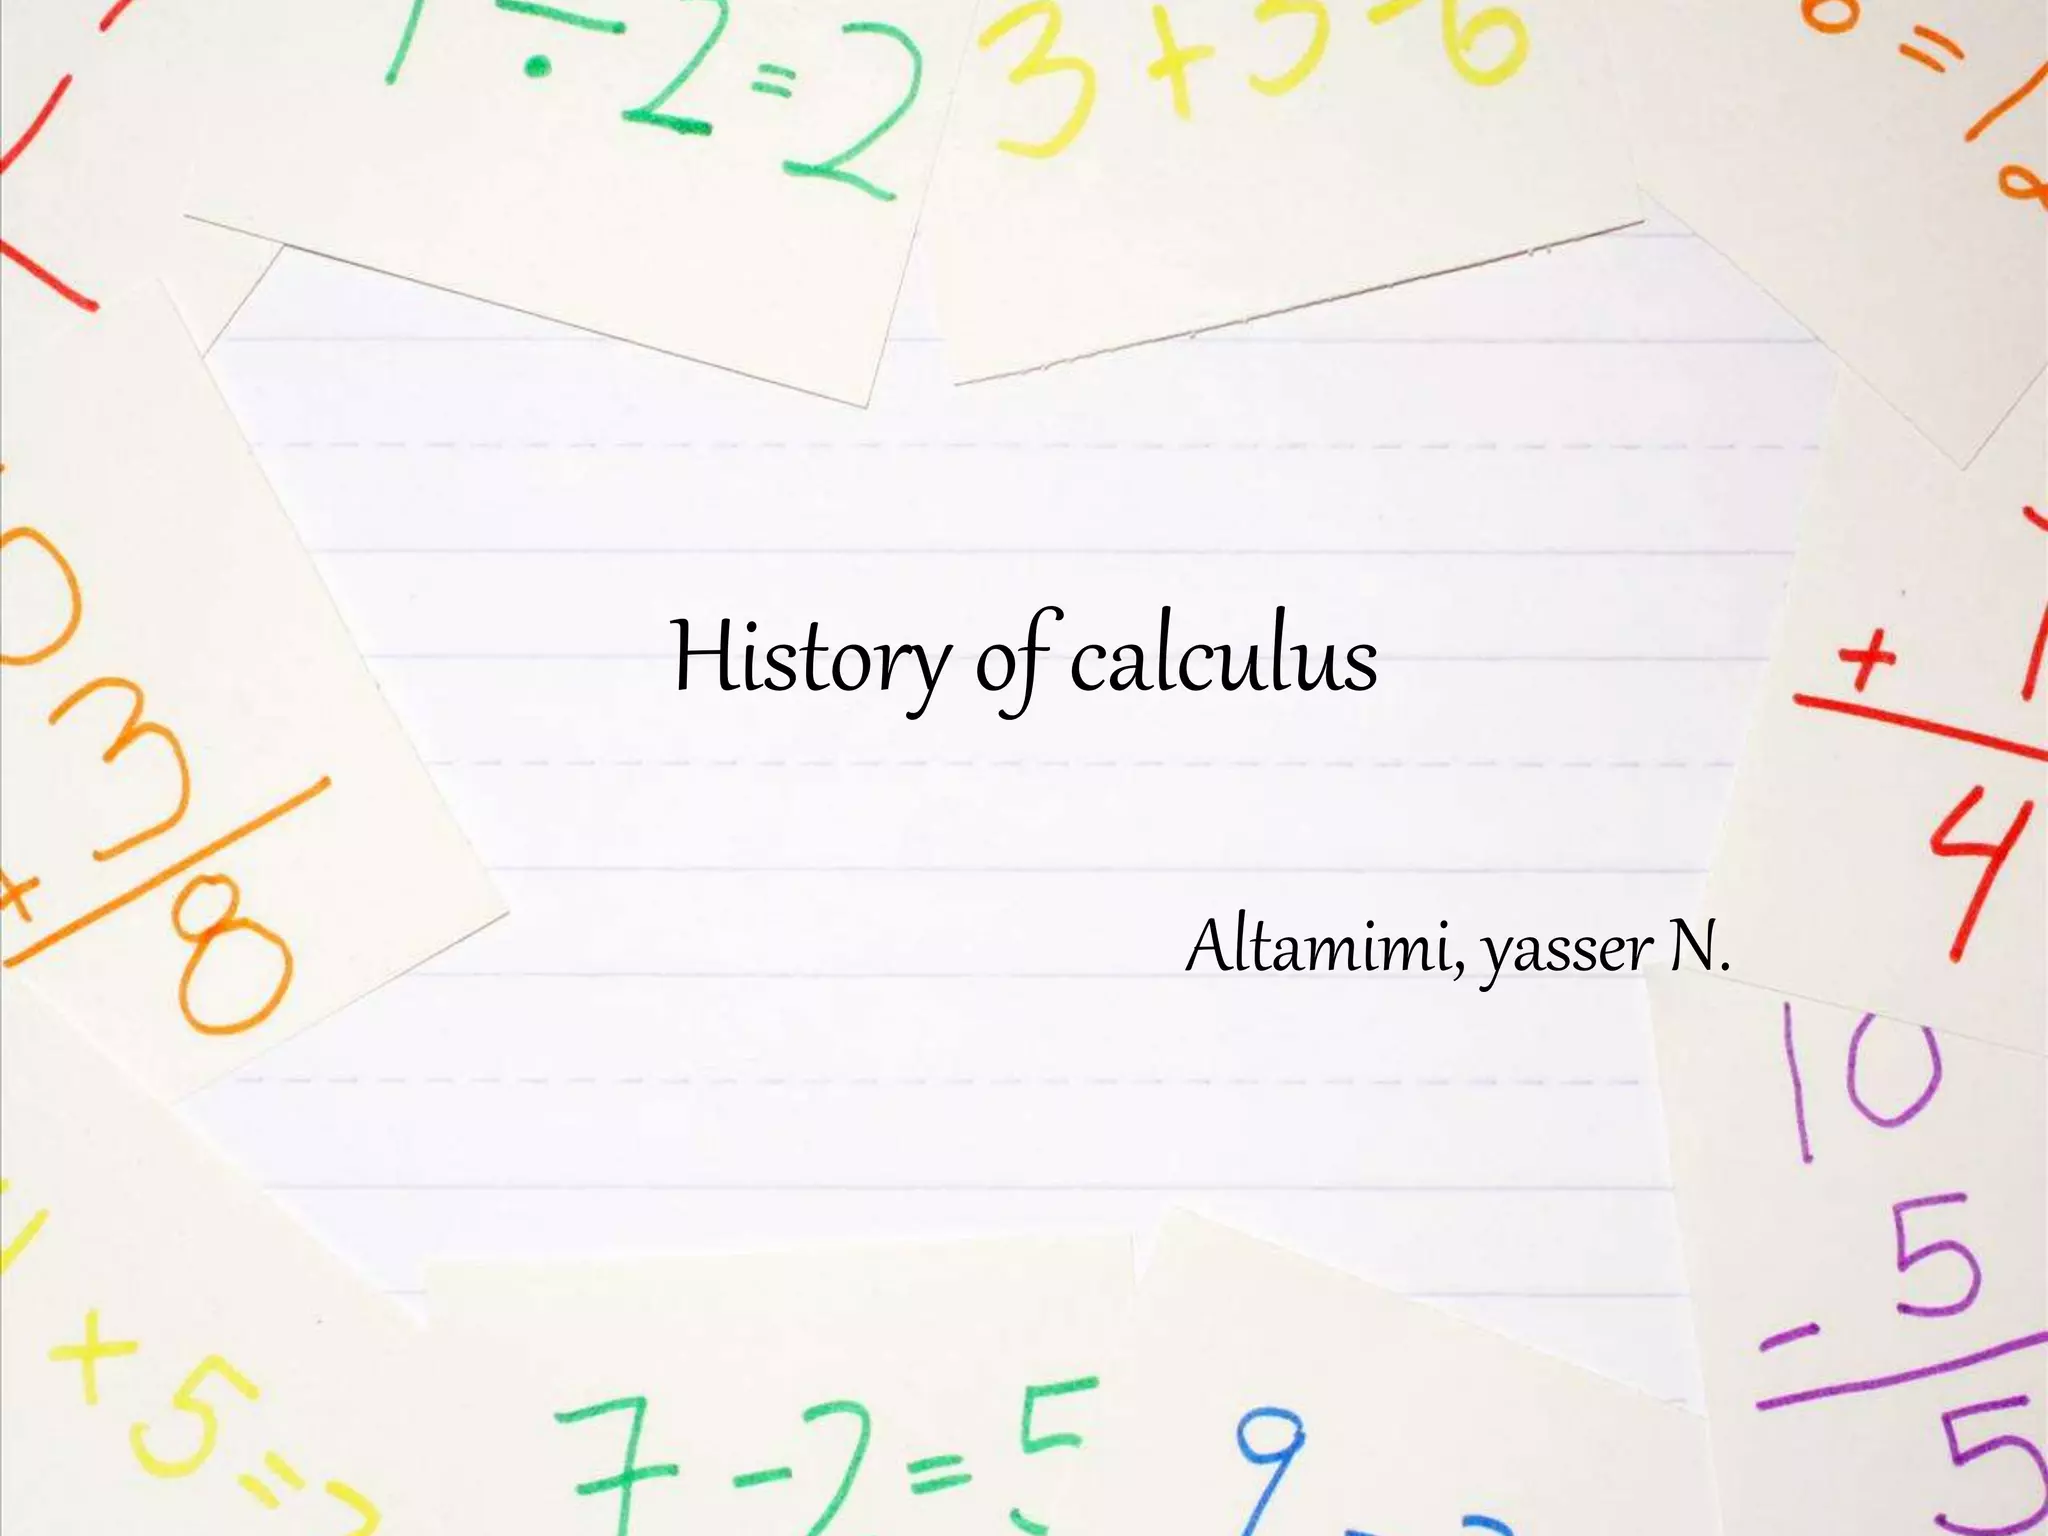 ÷ 2 = 2
3 +
=
3
8
+
+
4
10
- 5
5
+ 5 =
7 - 2 = 5
9
History of calculus
Altamimi, yasser N.